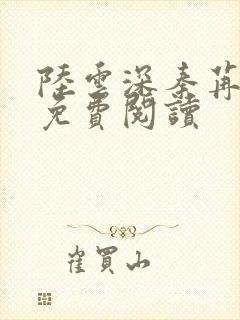 陸雲深秦苒
免費閱讀
崔買山